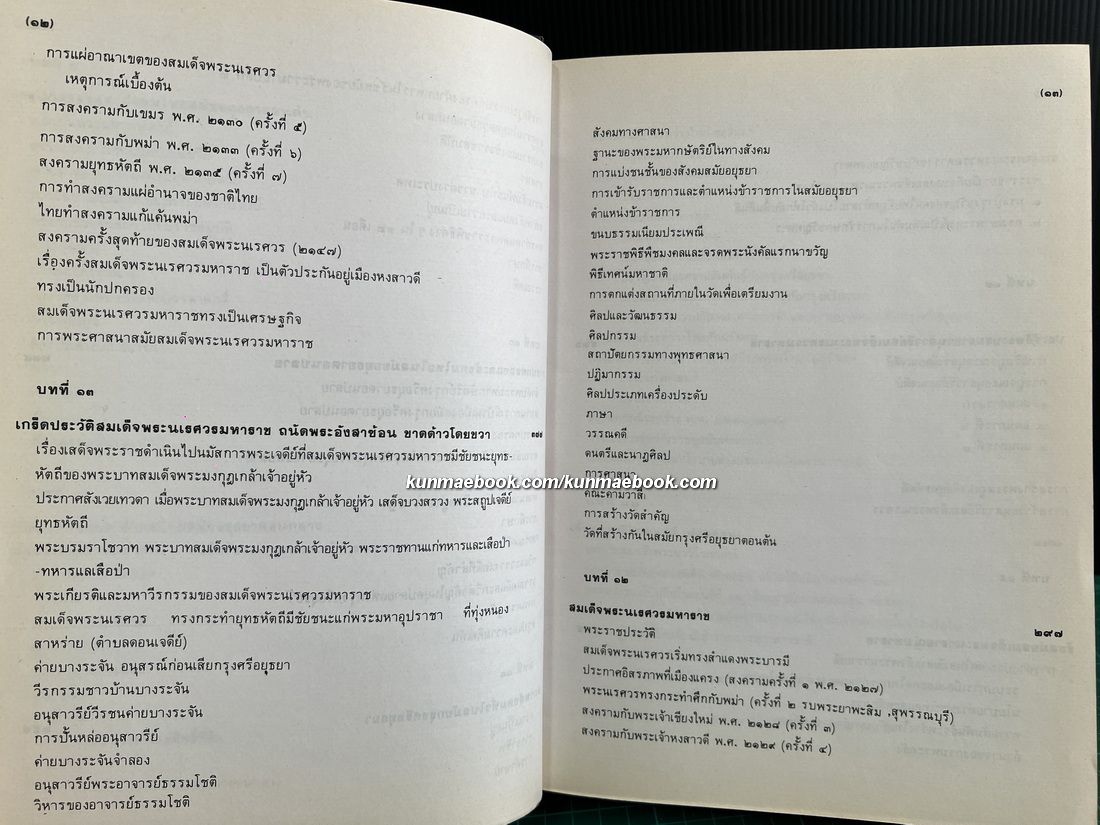 (๑๒)
การแผ่อาณาเขตของสมเด็จพระนเรศวร
เหตุการณ์เบื้องต้น
การสงครามกับเขมร พ.ศ. ๒๑๓๐ (ครั้งที่ ๕)
การสงครามกับพม่า พ.ศ. ๒๑๓๓ (ครั้งที่ ๖)
สงครามยุทธหัตถี พ.ศ. ๒๑๓๕ (ครั้งที่ ๗)
การทำสงครามแผ่อำนาจของชาติไทย
ไทยทำสงครามแก้แค้นพม่า
สงครามครั้งสุดท้ายของสมเด็จพระนเรศวร (๒๑๔๗)
เรื่องครั้งสมเด็จพระนเรศวรมหาราช เป็นตัวประกันอยู่เมืองหงสาวดี
ทรงเป็นนักปกครอง
สมเด็จพระนเรศวรมหาราชทรงเป็นเศรษฐกิจ
การพระศาสนาสมัยสมเด็จพระนเรศวรมหาราช
บทที่ ๑๓
เกร็ดประวัติสมเด็จพระนเรศวรมหาราช ถนัดพระอังสาซ้อน ขาดด้าวโดยขวา
เรื่องเสด็จพระราชดำเนินไปนมัสการพระเจดีย์ที่สมเด็จพระนเรศวรมหาราชมีชัยชนะยุทธ-
หัตถีของพระบาทสมเด็จพระมงกุฎเกล้าเจ้าอยู่หัว
ประกาศสังเวยเทวดา เมื่อพระบาทสมเด็จพระมงกุฎเกล้าเจ้าอยู่หัว เสด็จบวงสรวง พระสถูปเจดีย์
ยุทธหัตถี
พระบรมราโชวาท พระบาทสมเด็จพระมงกุฎเกล้าเจ้าอยู่หัว พระราชทานแก่ทหารและเสือป่า
-ทหารแลเสือป่า
พระเกียรติและมหาวีรกรรมของสมเด็จพระนเรศวรมหาราช
สมเด็จพระนเรศวร ทรงกระทำยุทธหัตถีมีชัยชนะแก่พระมหาอุปราชา ที่ทุ่งหนอง
สาหร่าย (ตำบลดอนเจดีย์)
ค่ายบางระจัน อนุสรณ์ก่อนเสียกรุงศรีอยุธยา
วีรกรรมชาวบ้านบางระจัน
อนุสาวรีย์วีรชนค่ายบางระจัน
การปั้นหล่ออนุสาวรีย์
ค่ายบางระจันจำลอง
อนุสาวรีย์พระอาจารย์ธรรมโชติ
วิหารของอาจารย์ธรรมโชติ
(๑๓)
สังคมทางศาสนา
ฐานะของพระมหากษัตริย์ในทางสังคม
การแบ่งชนชั้นของสังคมสมัยอยุธยา
การเข้ารับราชการและตำแหน่งข้าราชการในสมัยอยุธยา
ตำแหน่งข้าราชการ
ขนบธรรมเนียมประเพณี
พระราชพิธีพืชมงคลและจรดพระนังคัลแรกนาขวัญ
พิธีเทศน์มหาชาติ
การตกแต่งสถานที่ภายในวัดเพื่อเตรียมงาน
ศิลปและวัฒนธรรม
ศิลปกรรม
สถาปัตยกรรมทางพุทธศาสนา
ปฏิมากรรม
ศิลปประเภทเครื่องประดับ
ภาษา
วรรณคดี
ดนตรีและนาฏศิลป
การศาสนา
kunmaebook.com/kunmaebook.com
คณะคามวาสี
การสร้างวัดสำคัญ
วัดที่สร้างกันในสมัยกรุงศรีอยุธยาตอนต้น
บทที่ ๑๒
สมเด็จพระนเรศวรมหาราช ๒๙๗
พระราชประวัติ
สมเด็จพระนเรศวรเริ่มทรงสำแดงพระบารมี
ประกาศอิสรภาพที่เมืองแครง (สงครามครั้งที่ ๑ พ.ศ. ๒๑๒๗)
พระนเรศวรทรงกระทำศึกกับพม่า (ครั้งที่ ๒ รบพระยาพะสิม .สุพรรณบุรี)
สงครามกับพระเจ้าเชียงใหม่ พ.ศ. ๒๑๒๘ (ครั้งที่ ๓)
สงครามกับพระเจ้าหงสาวดี พ.ศ. ๒๑๒๙ (ครั้งที่ ๔)